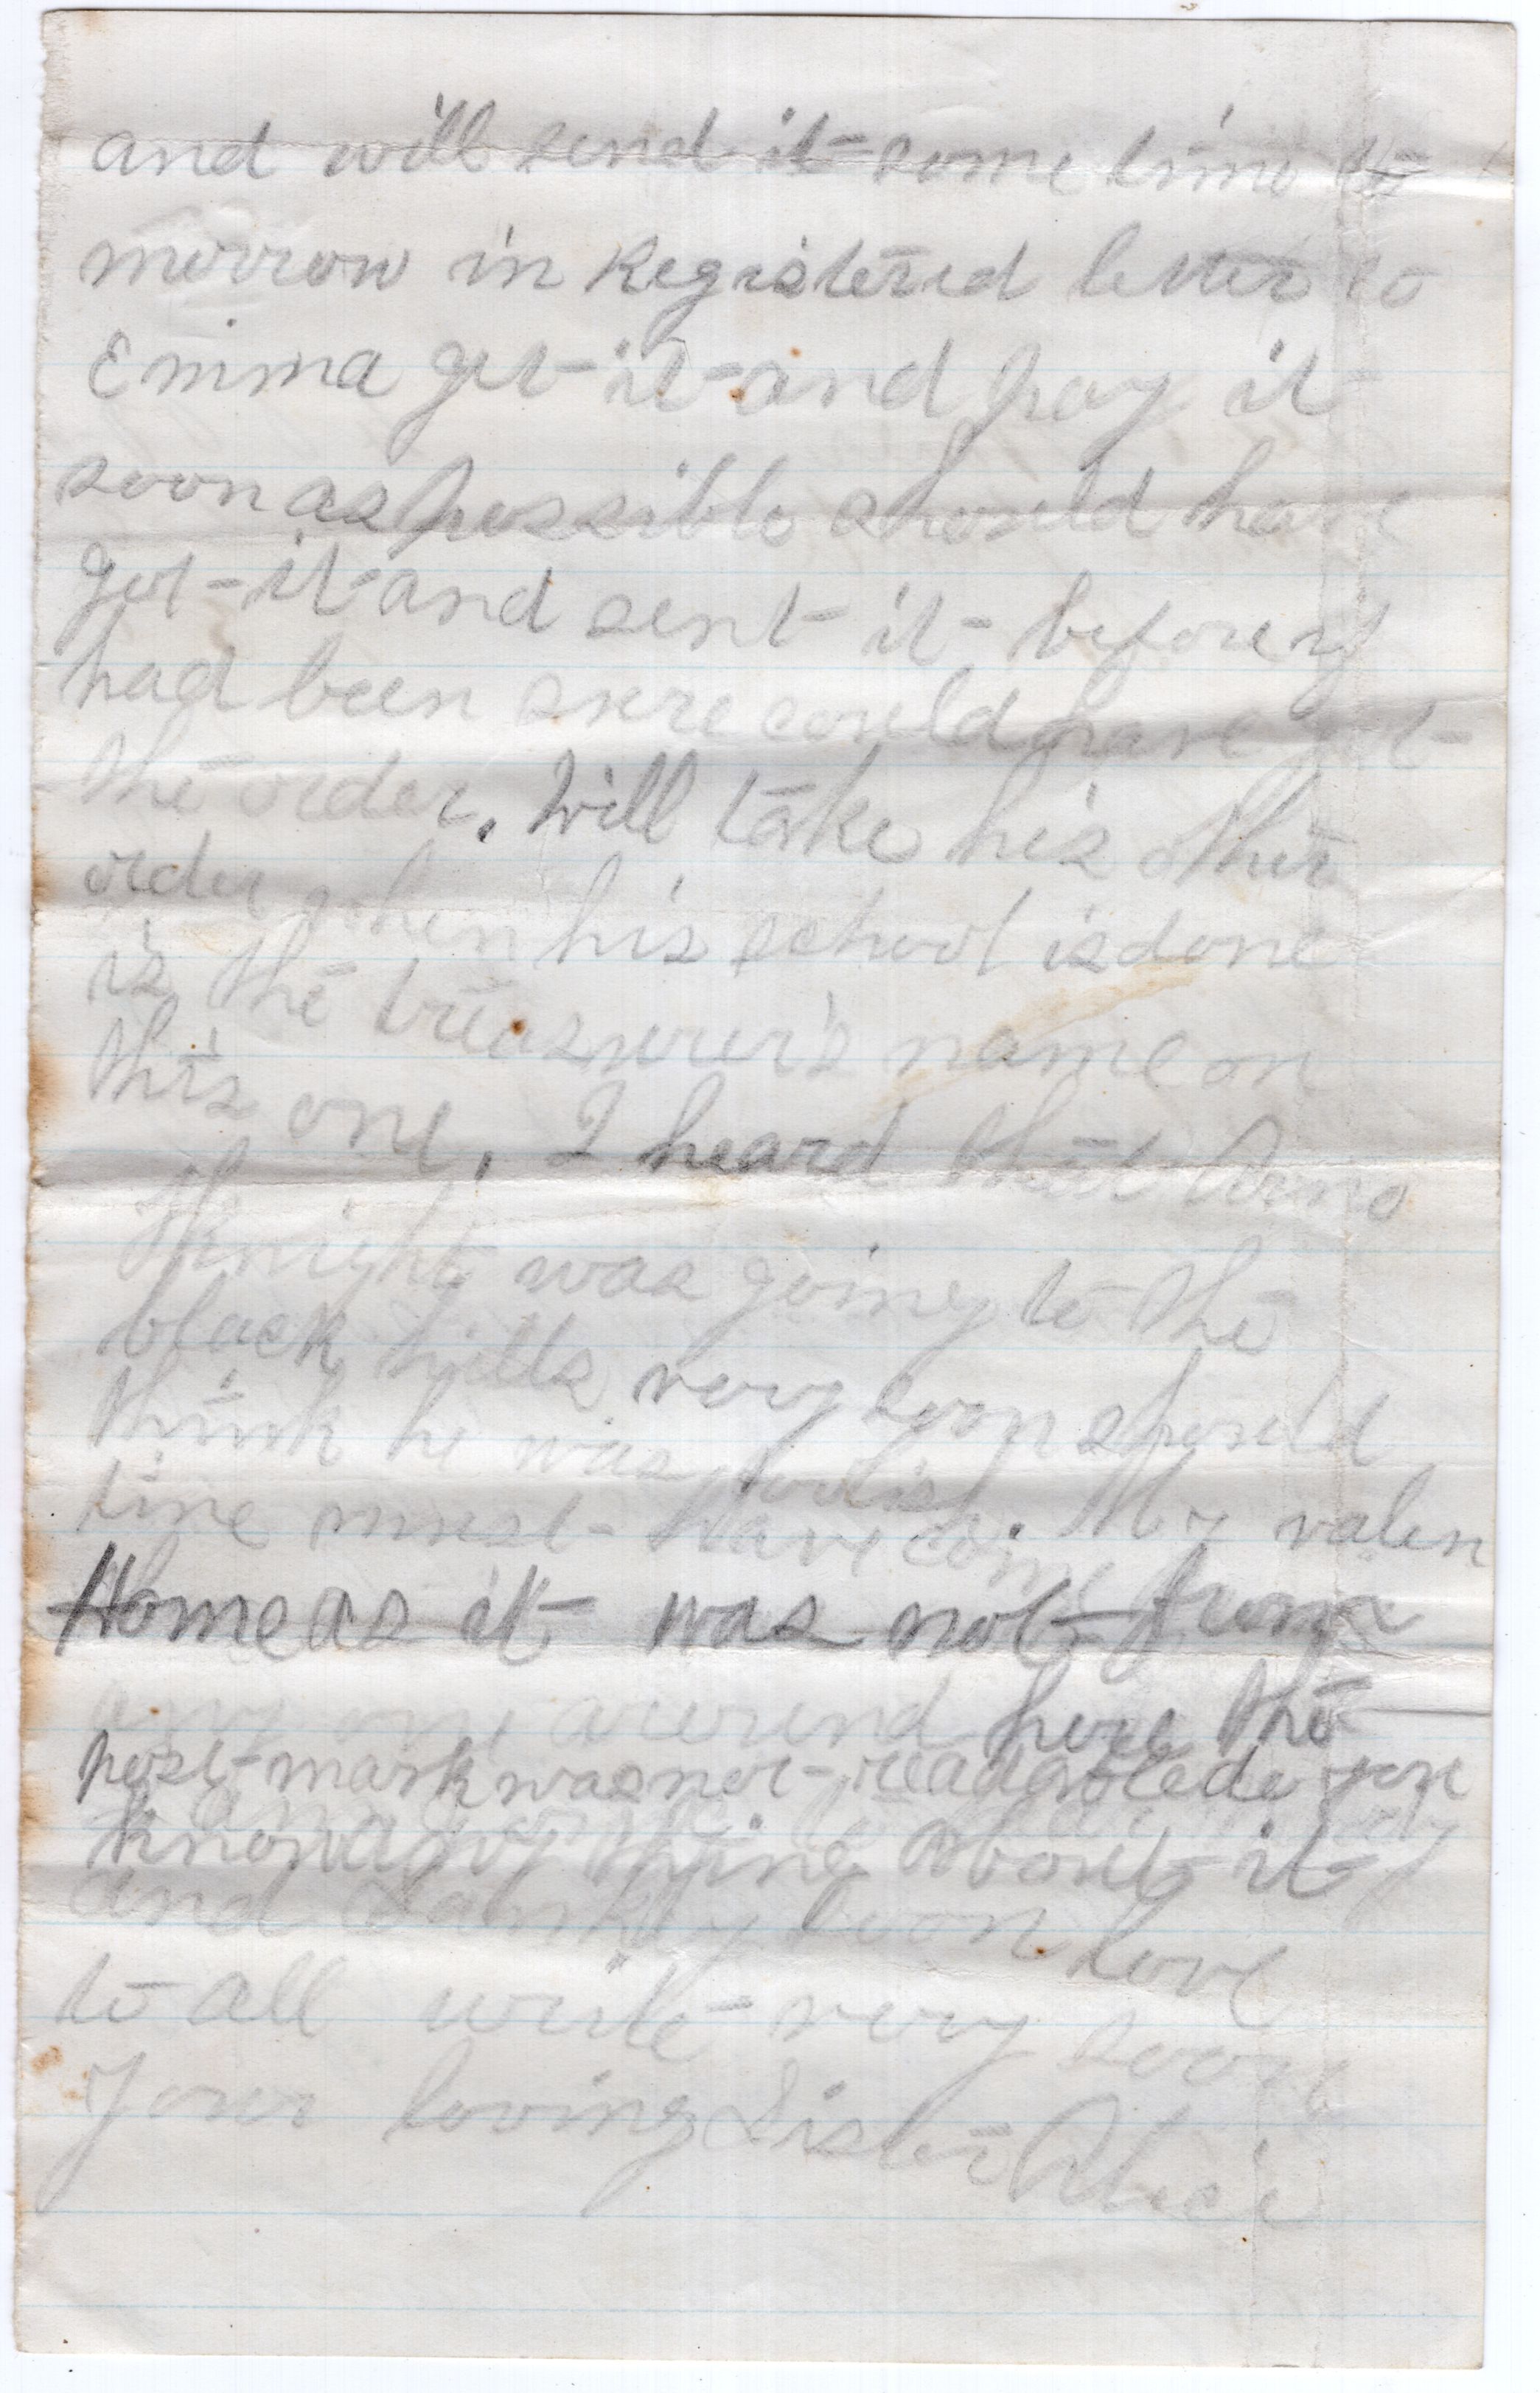 and will send it some time to
morrow in Registered letter to
Emma get it and pay it
soon as possible should have
got it and sent it before if
had been sure could have got
the order. Will take his other
order when his school is done
is the treasurer's name on
this one. I heard that Arno
Knight was going to the
black hills very soon should
think he was foolish. My valen
tine must have come from
Home as it was not from
any one around here the
post-mark was not readable do you
know any thing about it
and soon love
to all write very soon
Your loving Sister Alice